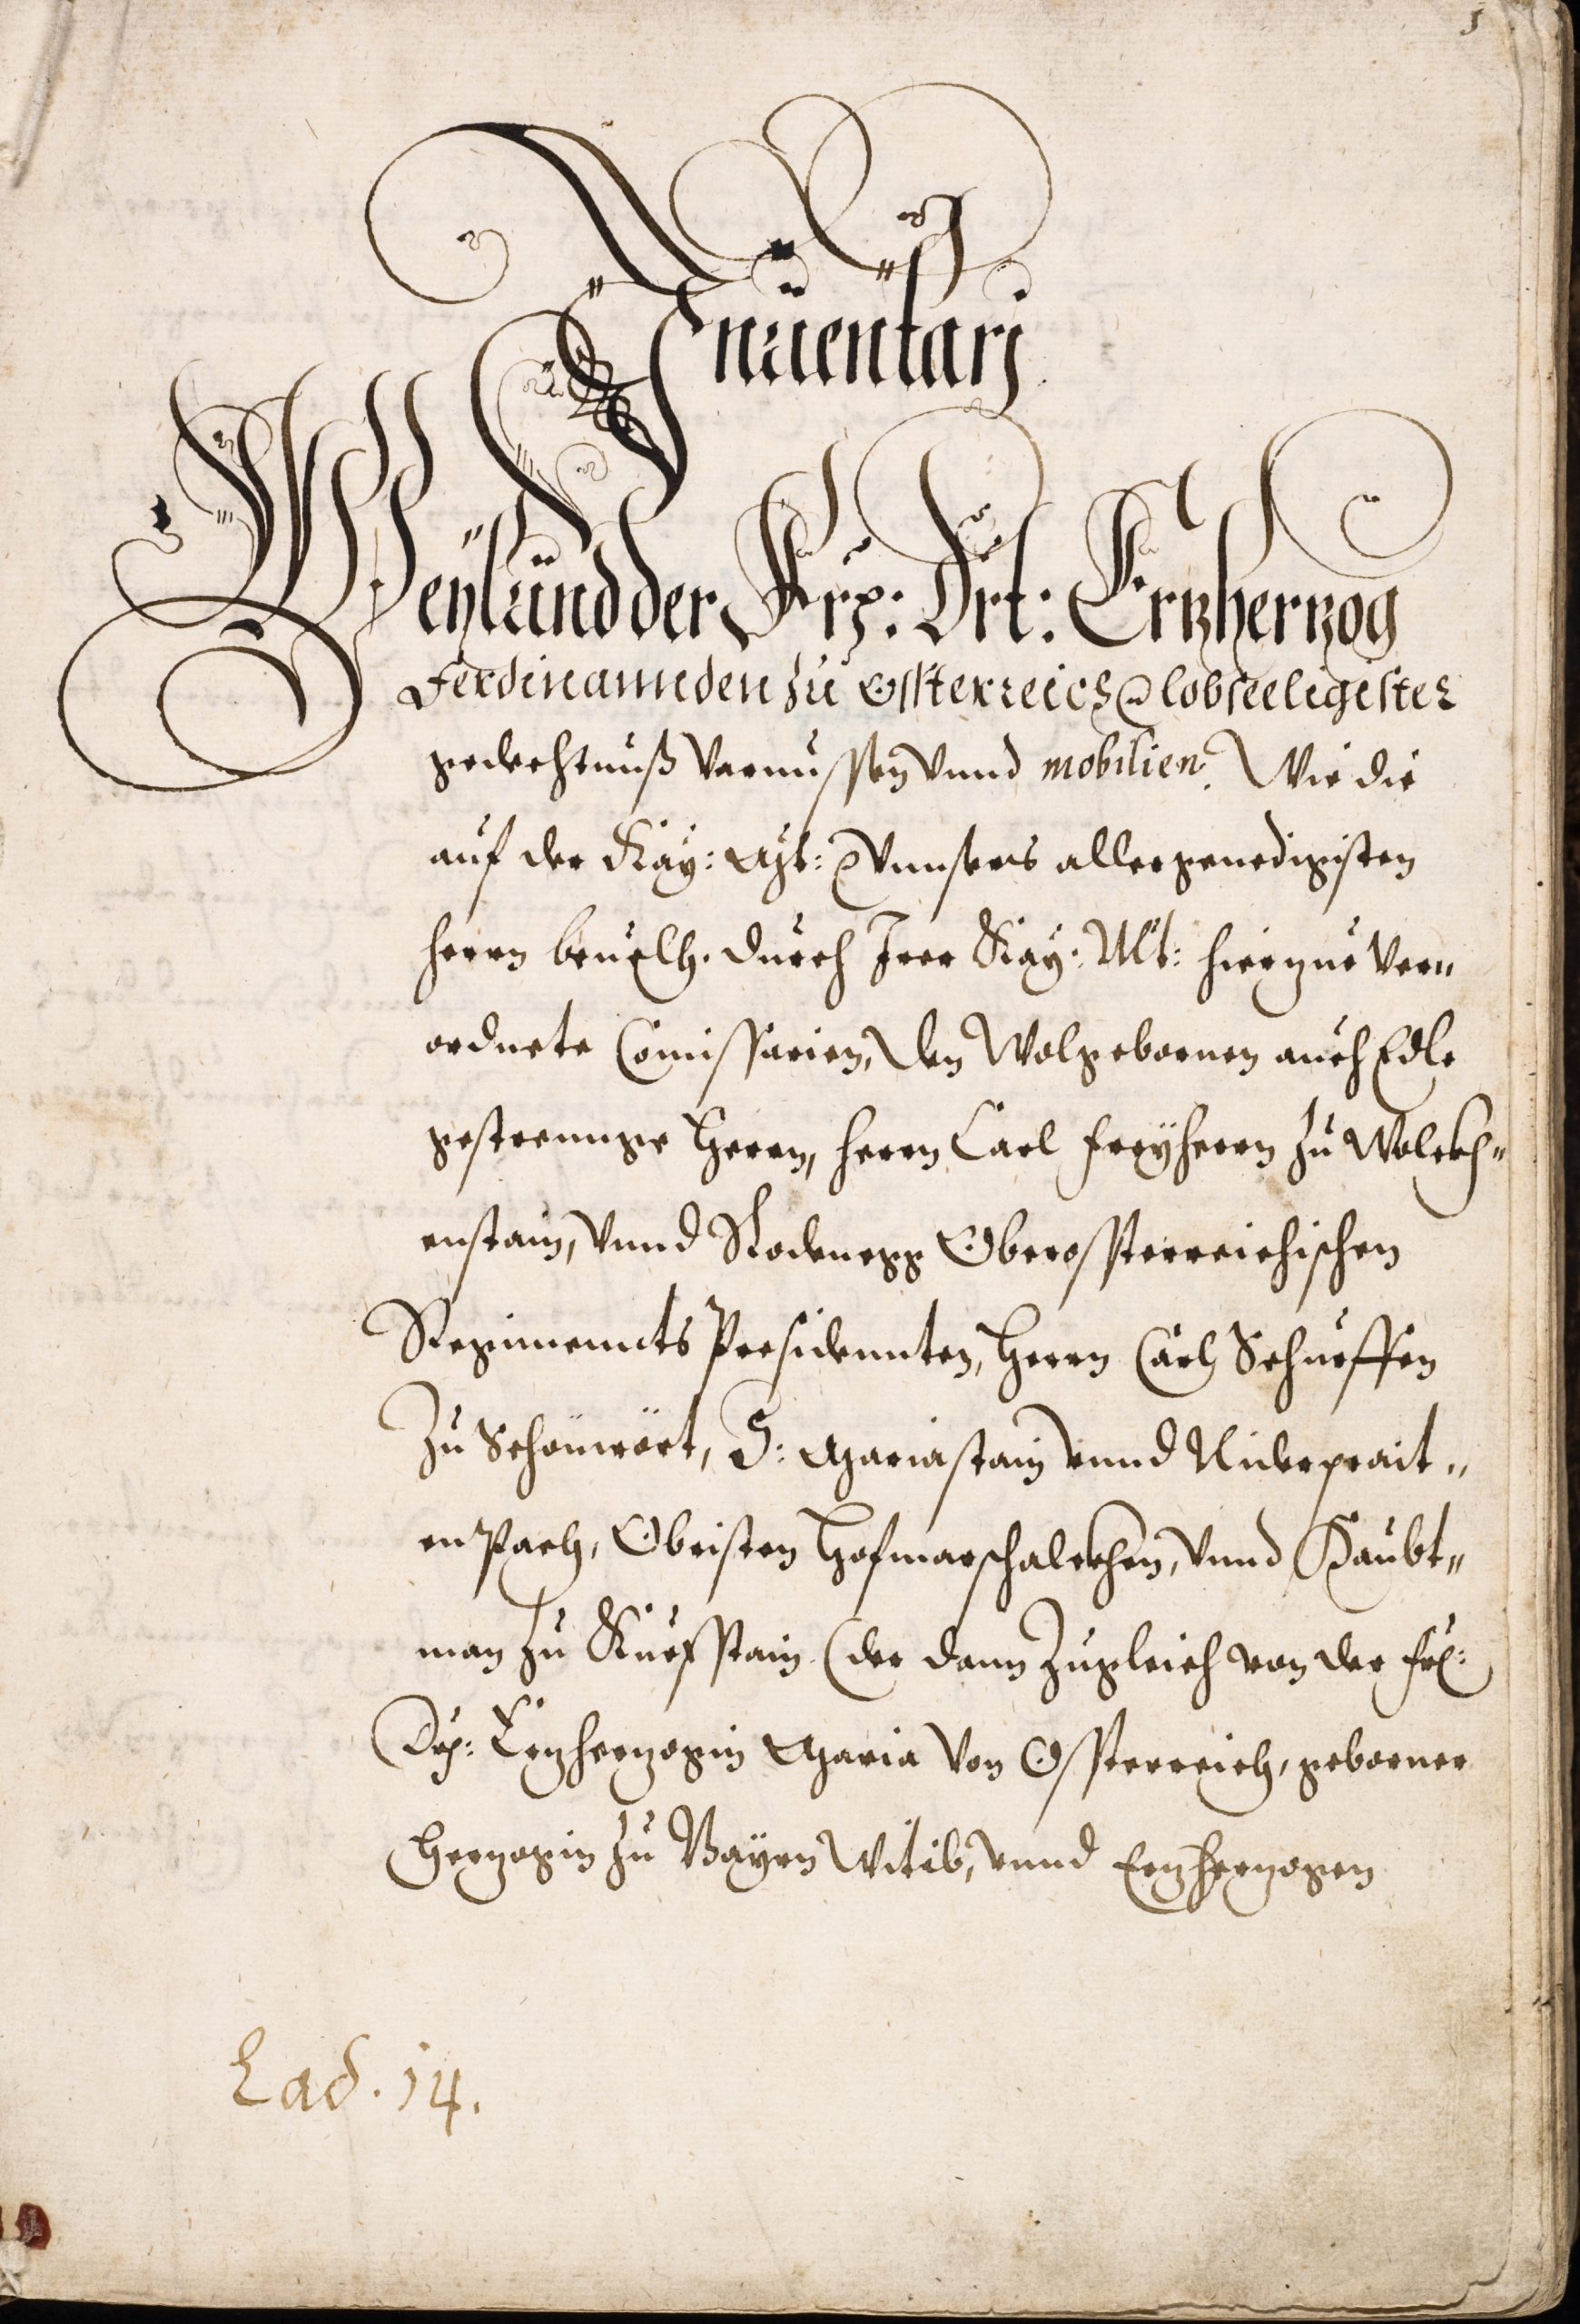 1
Inuentarj
Weylund der Frt: Drt: Ertzhertzog
Ferdinannden zu Ossterreich lobseeligister
gedechtnuß Varnussen Vnnd mobilien. Wie die
auf der Kay: Mt: Vnnsers allergenedigisten
herrn beuelh. durch Irer Kay: Mt: hierzue Ver„
ordnete Comissarien, den Wolgebornen auch Edle
gestrennge Herrn, herrn Carl freyherrn zu Wolckh„
enstain, Vnnd Rodnegg Oberossterreichischen
Regimennts Presidennten, Herrn Carl Schurffen
Zu Schönwört, S: Mariastain vnnd Niderprait„
en Pach, Obristen Hofmarschalckhen, Vnnd Haubt„
man zu Kuefstain (der dann Zugleich von der frl:
Drl: Ertzhertzogin Maria Von Ossterreich, geborner
Hertzogin zu Bayrn Witib, vnnd Ertzhertzogen
Lad. 14.